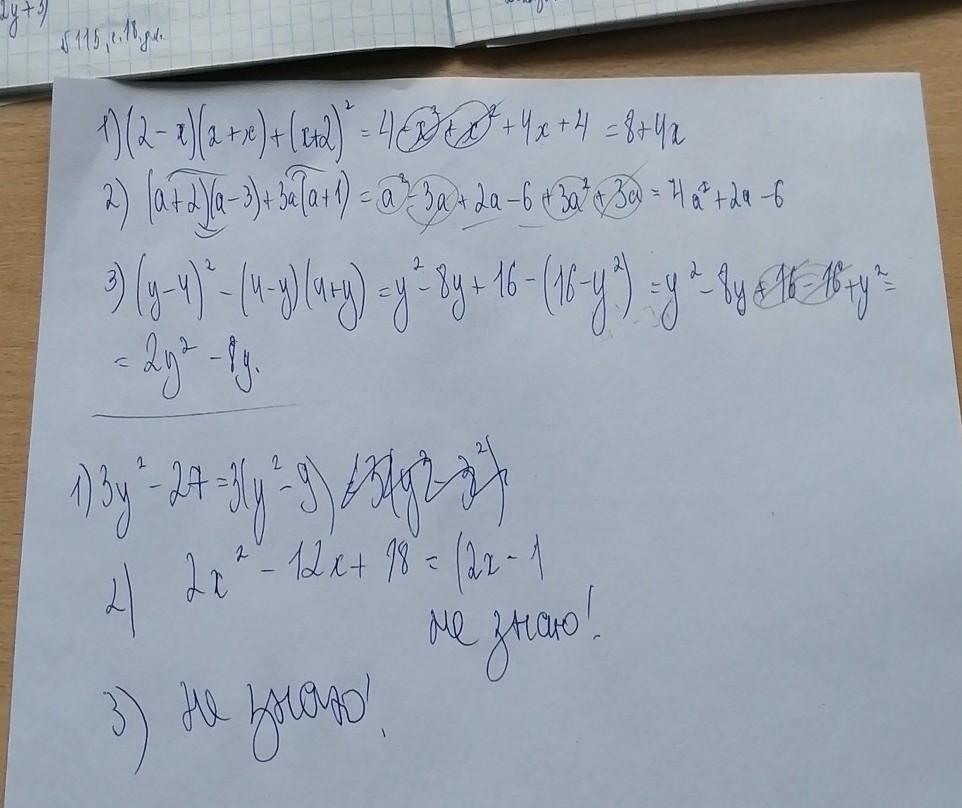 2y+3)
§ 115, с.18, д.м.
1) (2-x)(2+x)+(x+2)² = 4-x²+x²+4x+4 = 8+4x
2) (a+2)(a-3)+3a(a+1) = a²-3a+2a-6+3a²+3a = 4a²+2a-6
3) (y-4)² - (4-y)(4+y) = y²-8y+16-(16-y²) = y²-8y+16-16+y² =
= 2y² - 8y.
1) 3y² - 27 = 3(y²-9) = 3(y²-3²)
2) 2x² - 12x + 18 = (2x - 1
не знаю!
3) не знаю!